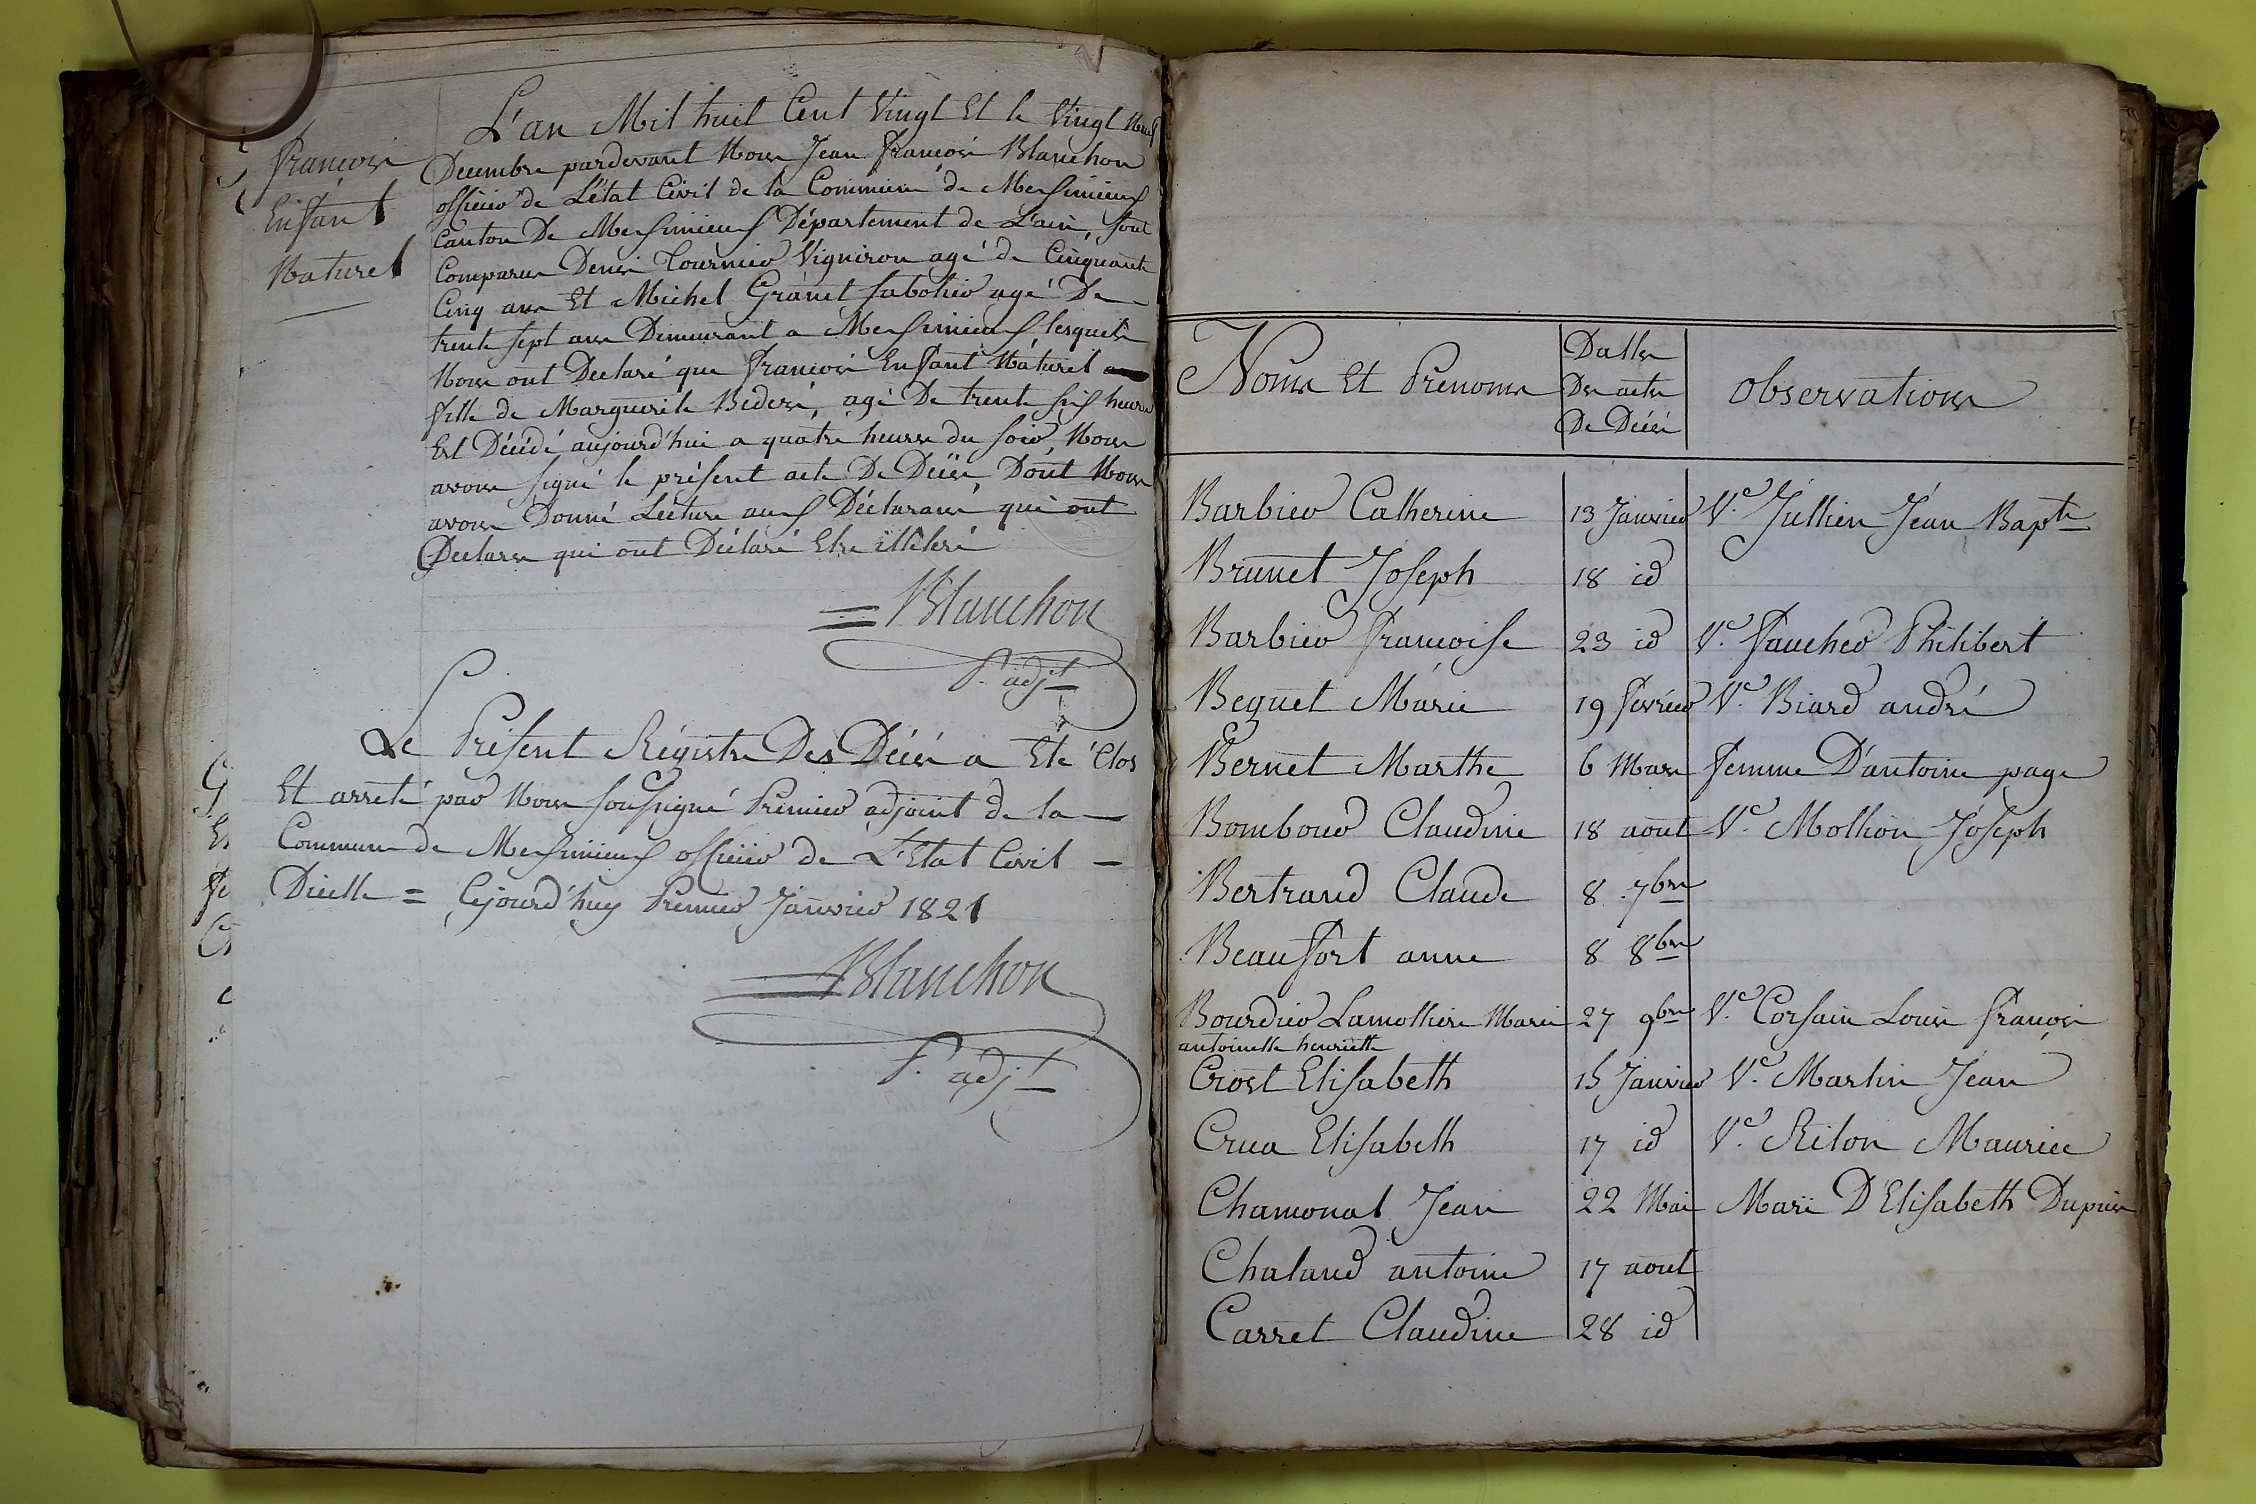 françois
Enfant
Naturel
L'an Mil huit Cent Vingt Et le Vingt Neuf
Decembre pardevant Nous Jean françois Blanchon
officier de L'état Civil de la Commune de Messimieux
Canton De Messimieux Département de L'ain, sont
Comparus Denis Tournier Vigniron agé de Cinquante
Cinq ans Et Michel Granet sabotier agé De
trente sept ans Demeurant a Messimieux, lesquels
Nous ont Declaré que françois Enfant Naturel
fille de Marguerite agé De trente six heures
Est Décédé aujourd'hui a quatre heures du soir, Nous
avons signé le présent acte De Décès Dont Nous
avons Donné Lecture aux Déclarans qui ont
Declare qui ont Déclaré Etre illétéré
Blanchon
P. adjt
Le Présent Régistre Des Décès a Eté Clos
Et arreté par Nous soussigné Premier adjoint de la
Commune de Messimieux officier de L'Etat Civil
Dicelle = Cejourd'huy Premier Janvier 1821
Blanchon
P. adjt
Noms Et Prenoms Dattes Des actes De Décès observations
Barbier Catherine 13 Janvier Ve. Jullien Jean Bapte
Brunet Joseph 18 id
Barbier françoise 23 id Ve. faucher Philibert
Beguet Marie 19 février Ve. Biard andré
Bernet Marthe 6 Mars femme D'antoine page
Bombour Claudine 18 aout Ve. Mollion Joseph
Bertrand Claude 8 7bre
Beaufort anne 8 8bre
Bourdier Lamolliere Marie 27 9bre Ve. Corsain Louis françois
antoinette henriette
Crost Elisabeth 15 Janvier Ve. Martin Jean
Crua Elisabeth 17 id Ve. Rilon Maurice
Chamonal Jean 22 Mai Marii D'Elisabeth Dupuis
Chaland antoine 17 aout
Carret Claudine 28 id